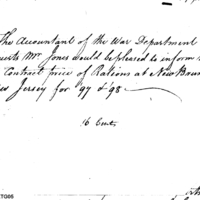 The Accountant of the War Department
uests Mr. Jones would be pleased to inform
Contract price of Rations at New
Jersey for '97 & '98 —
16 Cents.
TG05